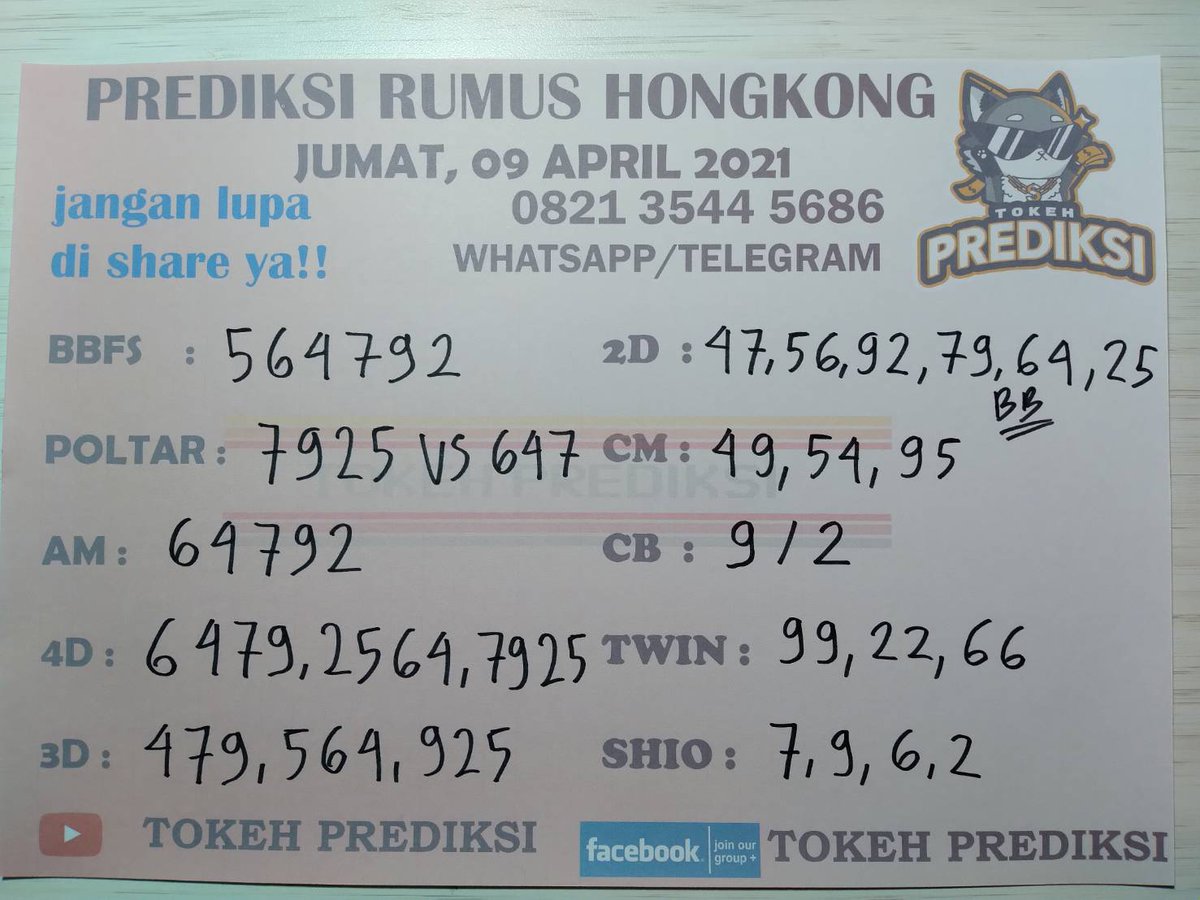 PREDIKSI RUMUS HONGKONG
JUMAT, 09 APRIL 2021
jangan lupa
di share ya!!
0821 3544 5686
WHATSAPP/TELEGRAM
TOKEH
PREDIKSI
BBFS : 564792
2D : 47,56,92,79,64,25
BB
POLTAR : 7925 VS 647
CM : 49, 54, 95
TOKEH PREDIKSI
AM : 64792
CB : 9 / 2
4D : 6479,2564,7925
TWIN : 99,22,66
3D : 479,564,925
SHIO : 7,9,6,2
TOKEH PREDIKSI
facebook
join our
group +
TOKEH PREDIKSI